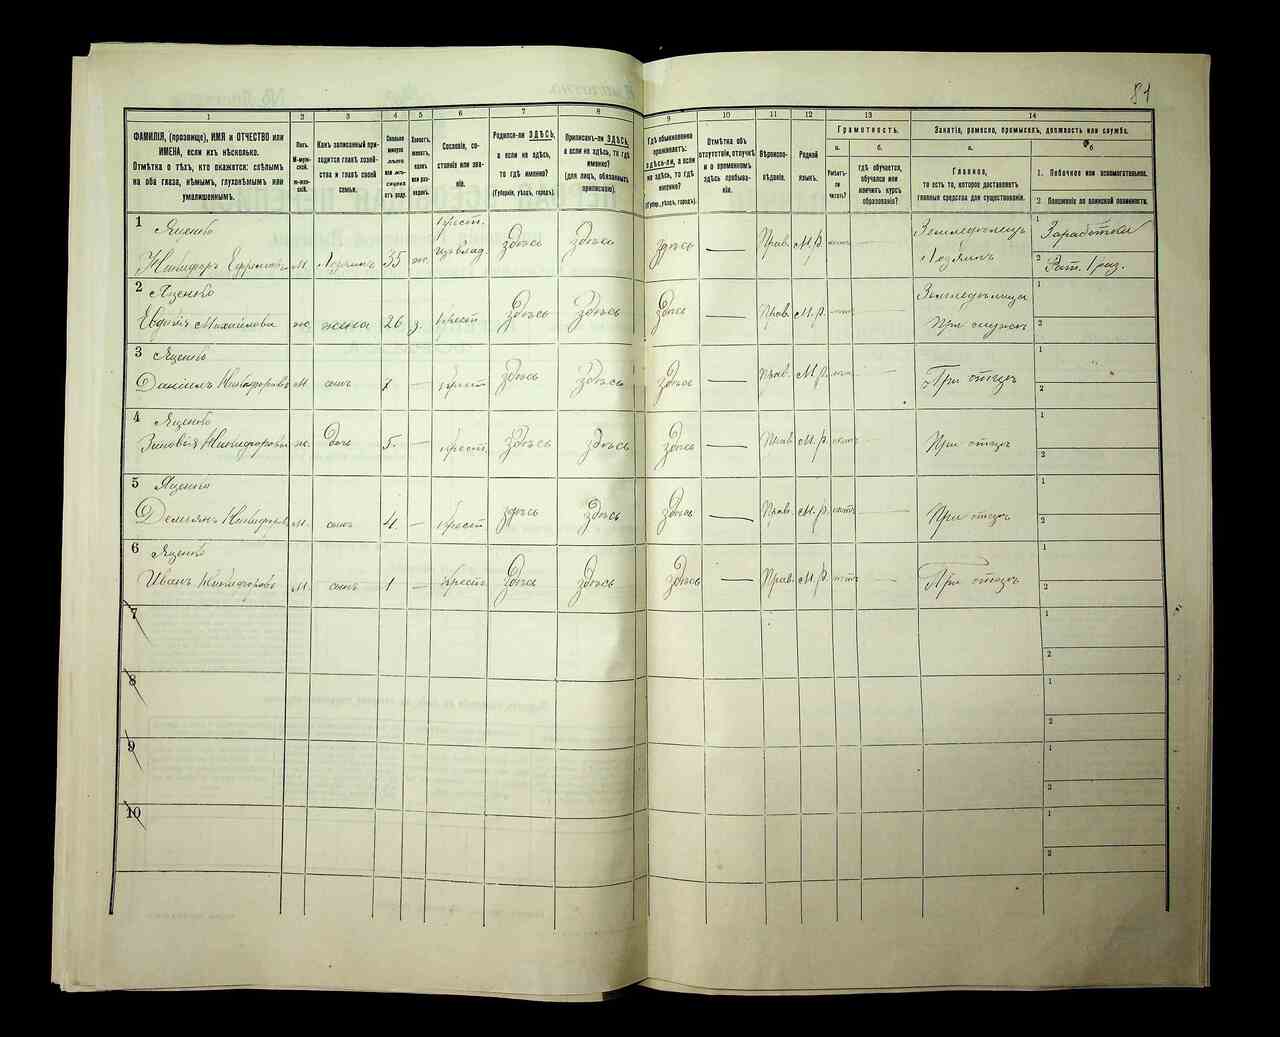 81
1 2 3 4 5 6 7 8 9 10 11 12 13 14
ФАМИЛІЯ, (прозвище), ИМЯ и ОТЧЕСТВО или
ИМЕНА, если ихъ нѣсколько.
Отмѣтка о тѣхъ, кто окажется: слѣпымъ
на оба глаза, нѣмымъ, глухонѣмымъ или
умалишеннымъ.
Полъ.
М-муж-
ской.
Ж-жен-
скій.
Какъ записанный при-
ходится главѣ хозяй-
ства и главѣ своей
семьи.
Сколько
минуло
лѣтъ
или мѣ-
сяцевъ
отъ роду.
Холостъ,
женатъ,
вдовъ
или раз-
веденъ.
Сословіе, со-
стояніе или зва-
ніе.
Родился-ли ЗДѢСЬ,
а если не здѣсь,
то гдѣ именно?
(Губернія, уѣздъ, городъ).
Приписанъ-ли ЗДѢСЬ,
а если не здѣсь, то гдѣ
именно?
(для лицъ, обязанныхъ
припискою).
Гдѣ обыкновенно
проживаетъ:
здѣсь-ли, а если
не здѣсь, то гдѣ
именно?
(Губер., уѣздъ, городъ).
Отмѣтка объ
отсутствіи, отлучкѣ
и о временномъ
здѣсь пребыва-
ніи.
Вѣроиспо-
вѣданіе.
Родной
языкъ.
Грамотность.
а.
Умѣетъ-
ли
читать?
б.
гдѣ обучается,
обучался или
кончилъ курсъ
образованія?
Занятіе, ремесло, промыселъ, должность или служба.
а.
Главное,
то есть то, которое доставляетъ
главныя средства для существованія.
б
1. Побочное или вспомогательное.
2 Положеніе по воинской повинности.
1 Яценко
Никифоръ Ефремовъ м. Хозяинъ 35 ж. Крест. изъ влад. здѣсь здѣсь здѣсь — Прав. М.р. нѣтъ — Земледѣлецъ Хозяинъ 1 Заработки
2 Рат. 1 раз.
2 Яценко
Евдокія Михайлова ж. жена 26 з. Крест. здѣсь здѣсь здѣсь — Прав. М.р. нѣтъ — Земледѣлица При мужѣ 1
2
3 Яценко
Даніилъ Никифоровъ м. сынъ — Крест. здѣсь здѣсь здѣсь — Прав. М.р. нѣтъ — При отцѣ 1
2
4 Яценко
Зиновія Никифорова ж. дочь 5 — Крест. здѣсь здѣсь здѣсь — Прав. М.р. нѣтъ — При отцѣ 1
2
5 Яценко
Демьянъ Никифоровъ м. сынъ 4 — Крест. здѣсь здѣсь здѣсь — Прав. М.р. нѣтъ — При отцѣ 1
2
6 Яценко
Иванъ Никифоровъ м. сынъ 1 — Крест. здѣсь здѣсь здѣсь — Прав. М.р. нѣтъ — При отцѣ 1
2
7 1
2
8 1
2
9 1
2
10 1
2